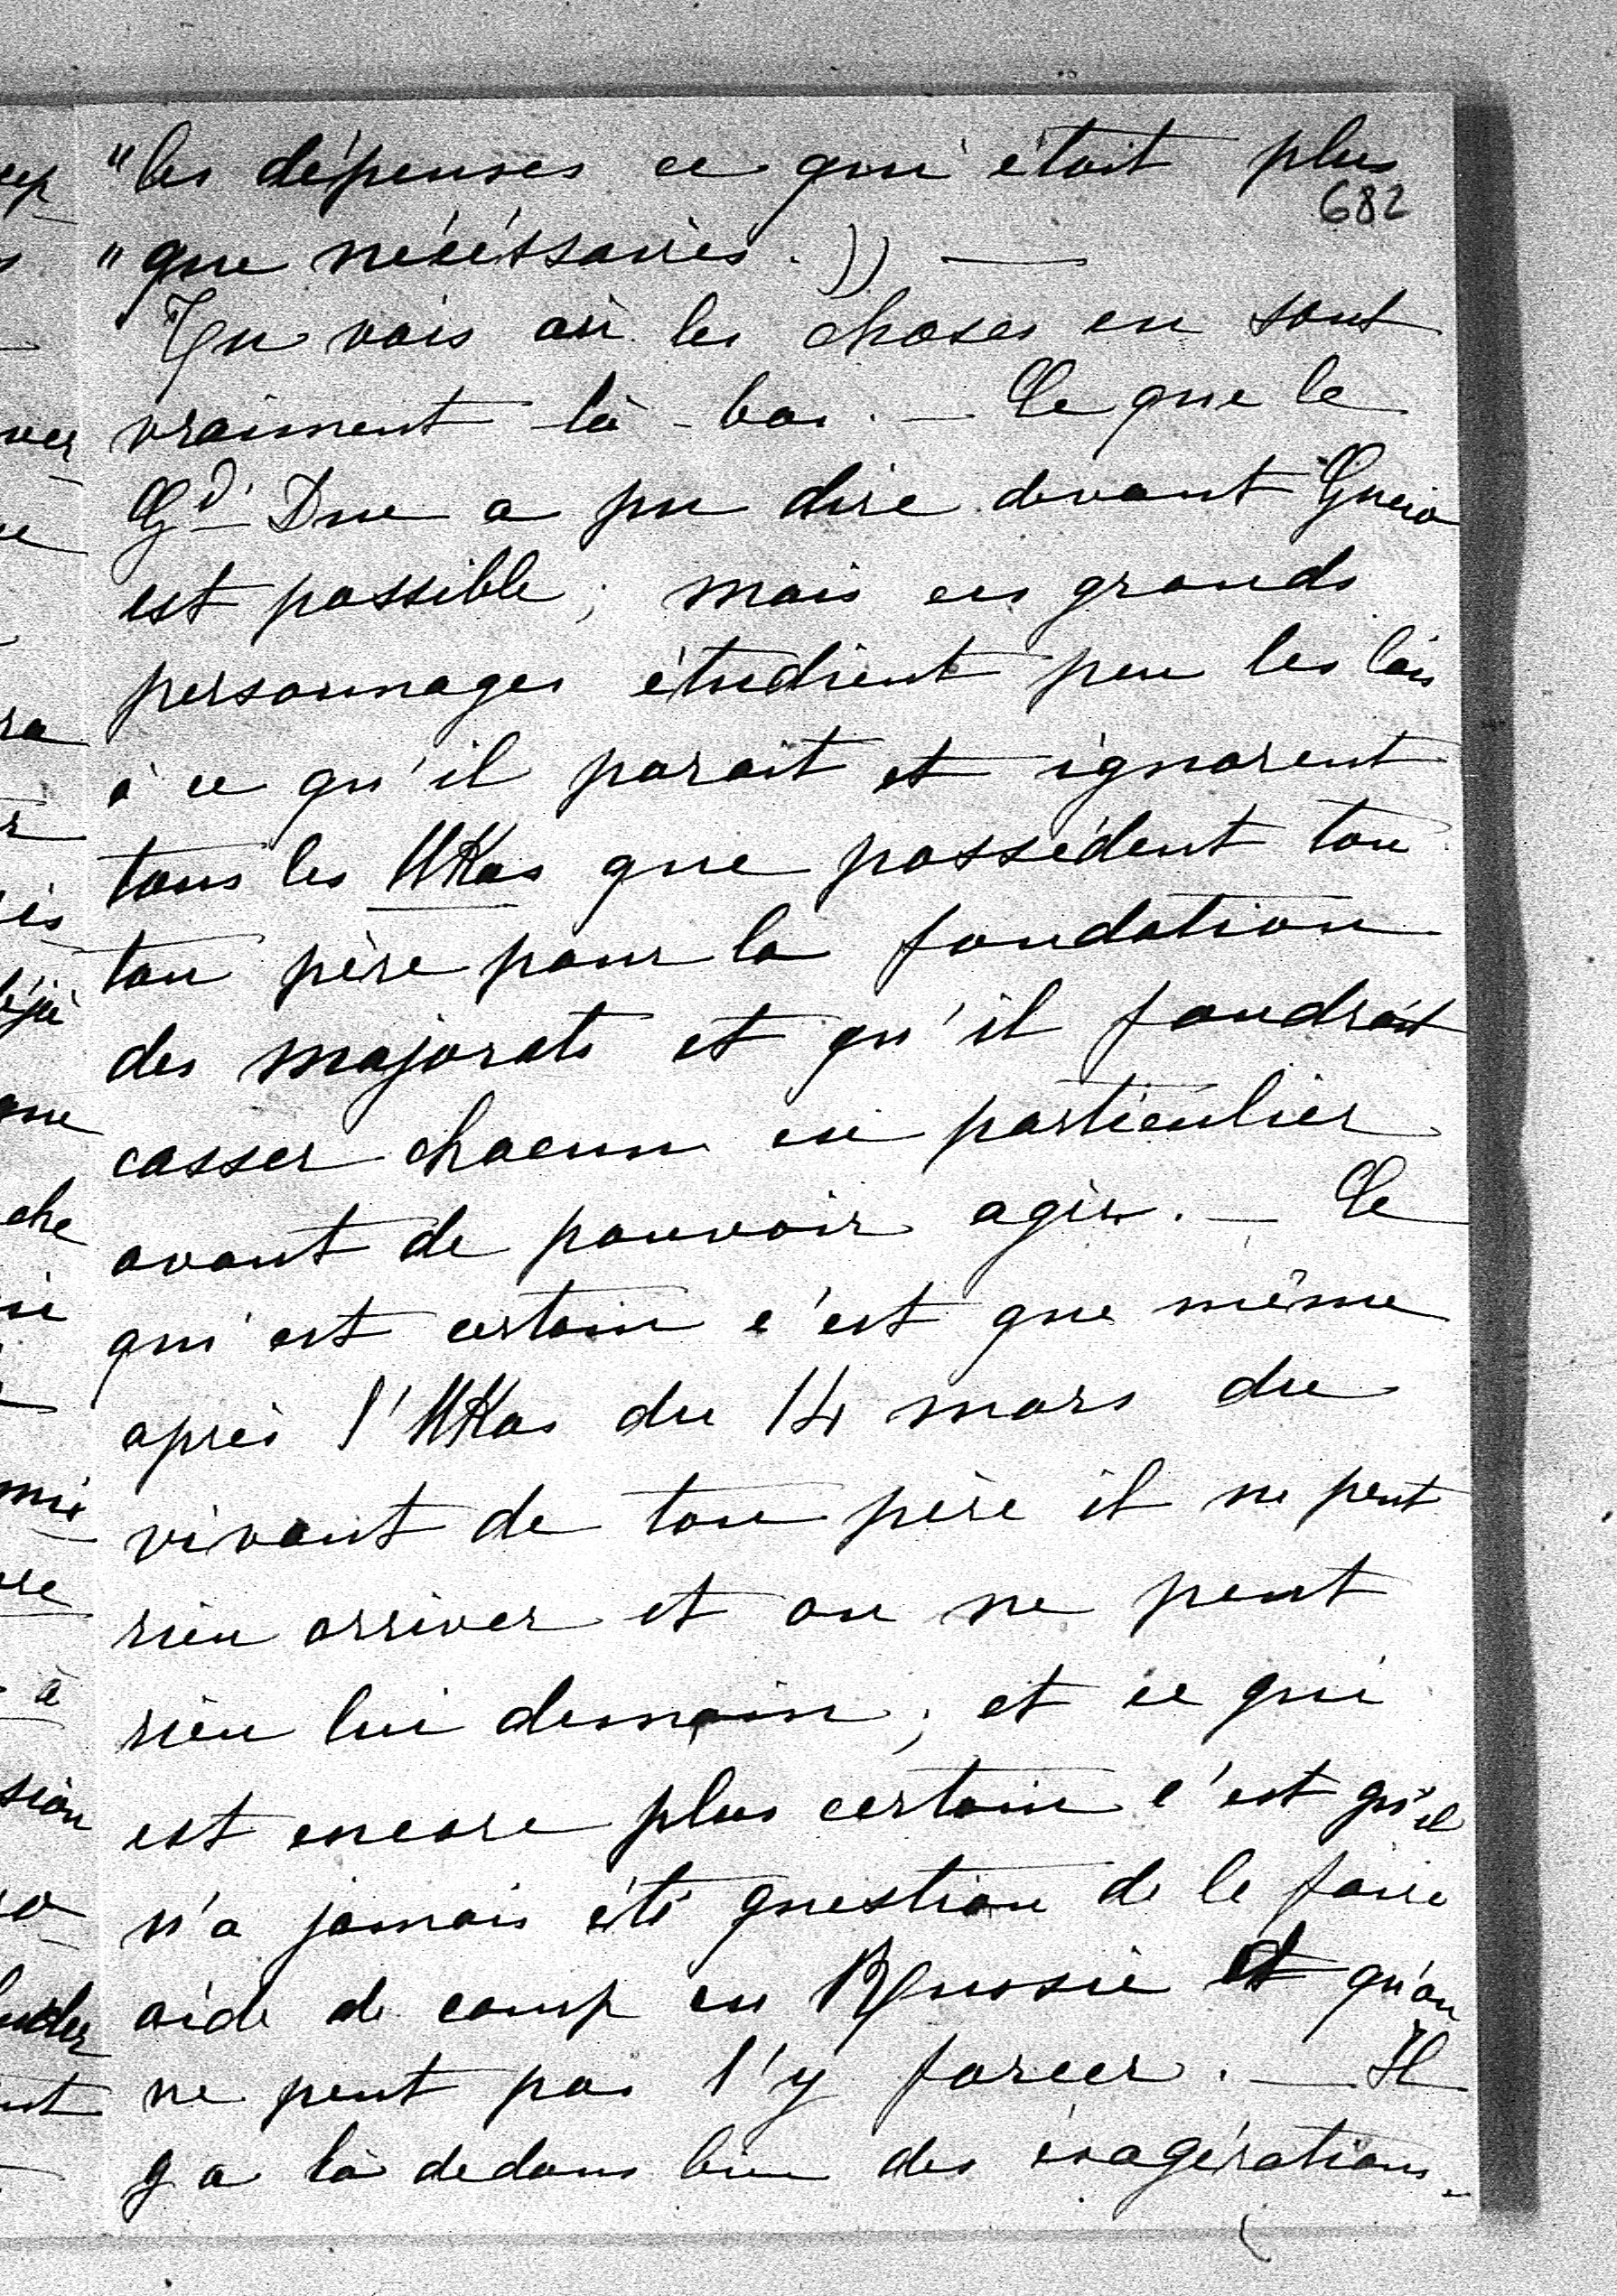 "les dépenses ce qui était plus
682
"que nécéssaires. )) —
Tu vois où les choses en sont
vraiment là-bas. — Ce que le
Gd. Duc a pu dire devant Gucia
est possible; mais ces grands
personnages étudient peu les lois
à ce qu'il parait et ignorent
tous les UKas que possèdent ton
ton père pour la fondation
des majorats et qu'il faudrait
casser chacun en particulier
avant de pouvoir agir. — Ce
qui est certain c'est que même
après l'UKas du 14 mars du
vivant de ton père il ne peut
rien arriver et on ne peut
rien lui demain; et ce qui
est encore plus certain c'est qu'il
n'a jamais été question de le faire
aide de camp en Russie et qu'on
ne peut pas l'y forcer. — Il
y a là dedans bien des éxagérations.